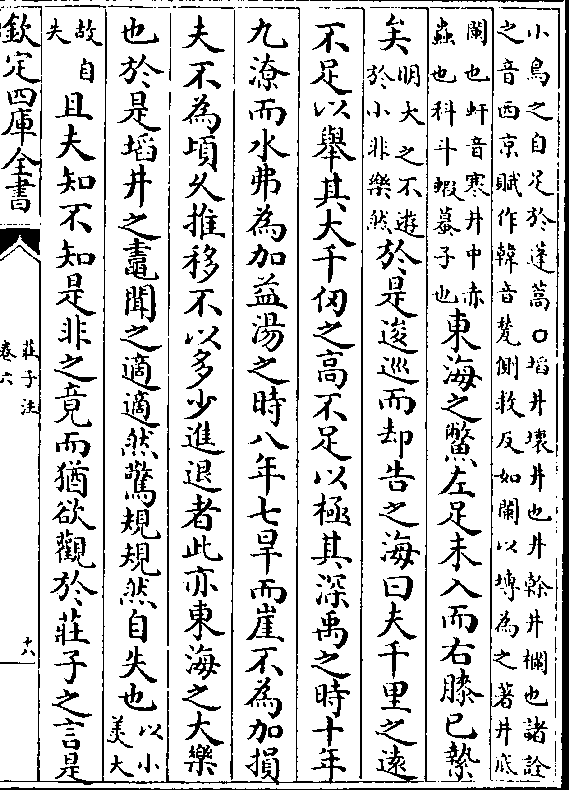 小鳥之自足於蓬蒿○埳井壞井也井幹井欄也諸詮
之音西京賦作韓音甃側救反如闌以塼為之著井底
闌也虷音寒井中赤
蟲也科斗蝦蟇子也東海之鱉左足未入而右膝已縶
矣明大之不遊
於小非樂然於是逡巡而却告之海曰夫千里之遠
不足以舉其大千仞之高不足以極其深禹之時十年
九潦而水弗為加益湯之時八年七旱而崖不為加損
夫不為頃久推移不以多少進退者此亦東海之大樂
也於是埳井之鼃聞之適適然驚規規然自失也以小
羙大
故自
失且夫知不知是非之竟而猶欲觀於莊子之言是
欽定四庫全書
莊子注
卷六
十八